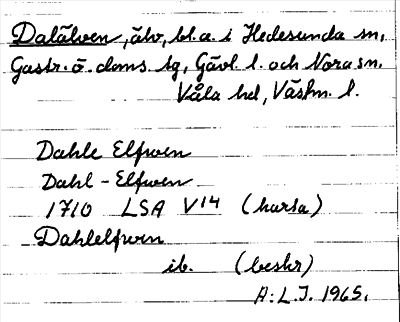 Dalälven, älv, bl.a. i Hedesunda sn,
Gästr. ö. doms. tg, Gävl. l. och Nora sn.
Våla hd, Västm. l.
Dahle Elfwen
Dahl-Elfwen
1710 LSA V14 (karta)
Dahlelfwen
ib. (beskr)
A:L.J. 1965.